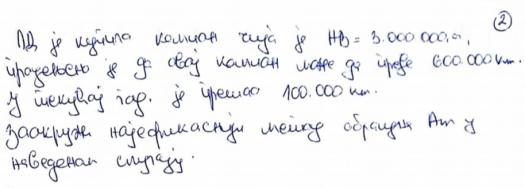 ②
ПД је купила камион чија је НВ = 3.000.000,
процењено је да овај камион може да пређе 600.000 км.
У текућој год. је прешао 100.000 км.
Заокружи најефикаснији метод обрачуна Ам у
наведеном случају.